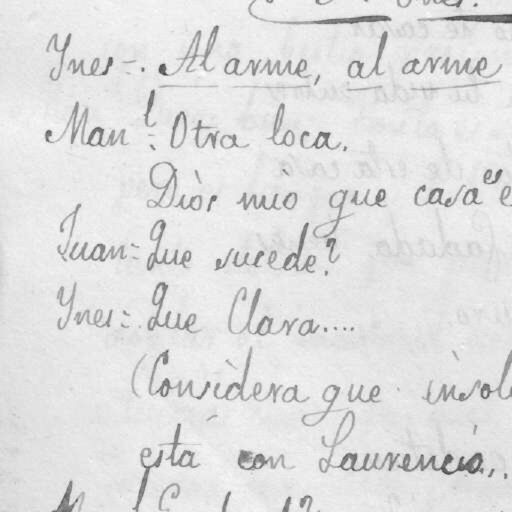 Ynes =. Al arme, al arme
Man^l = Otra loca.
Diòs mio que casa es e
Juan = Que sucede?
Ynes = Que Clara....
(Considera que insol
està con Laurencio,.